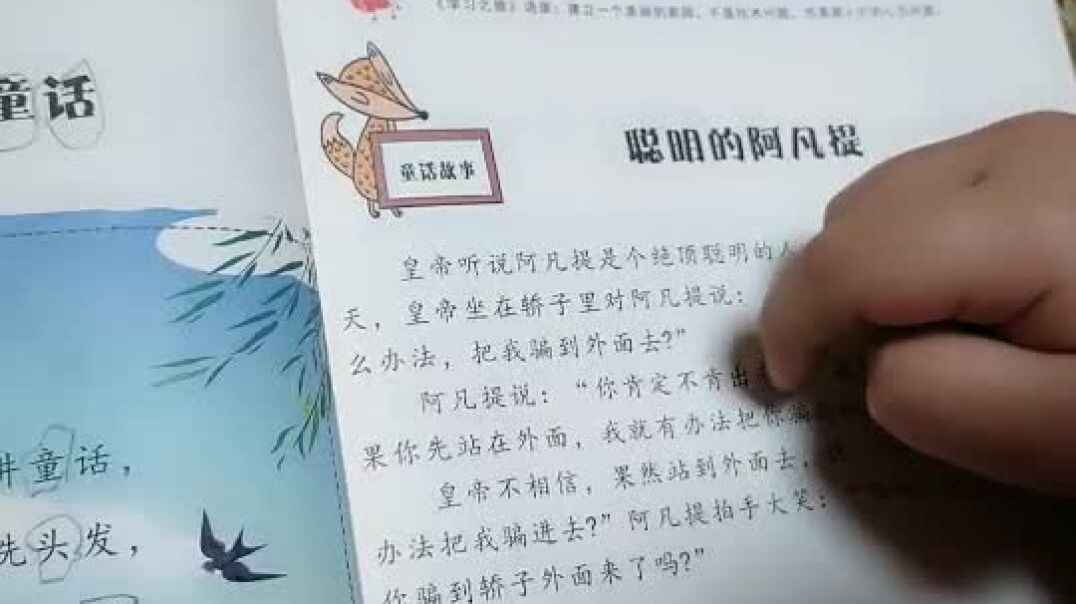 童话
讲童话，
洗头发，
童话故事
聪明的阿凡提
皇帝听说阿凡提是个绝顶聪明的人
天，皇帝坐在轿子里对阿凡提说：
么办法，把我骗到外面去？”
阿凡提说：“你肯定不肯出
果你先站在外面，我就有办法把你骗
皇帝不相信，果然站到外面去，
办法把我骗进去？”阿凡提拍手大笑：
你骗到轿子外面来了吗？”